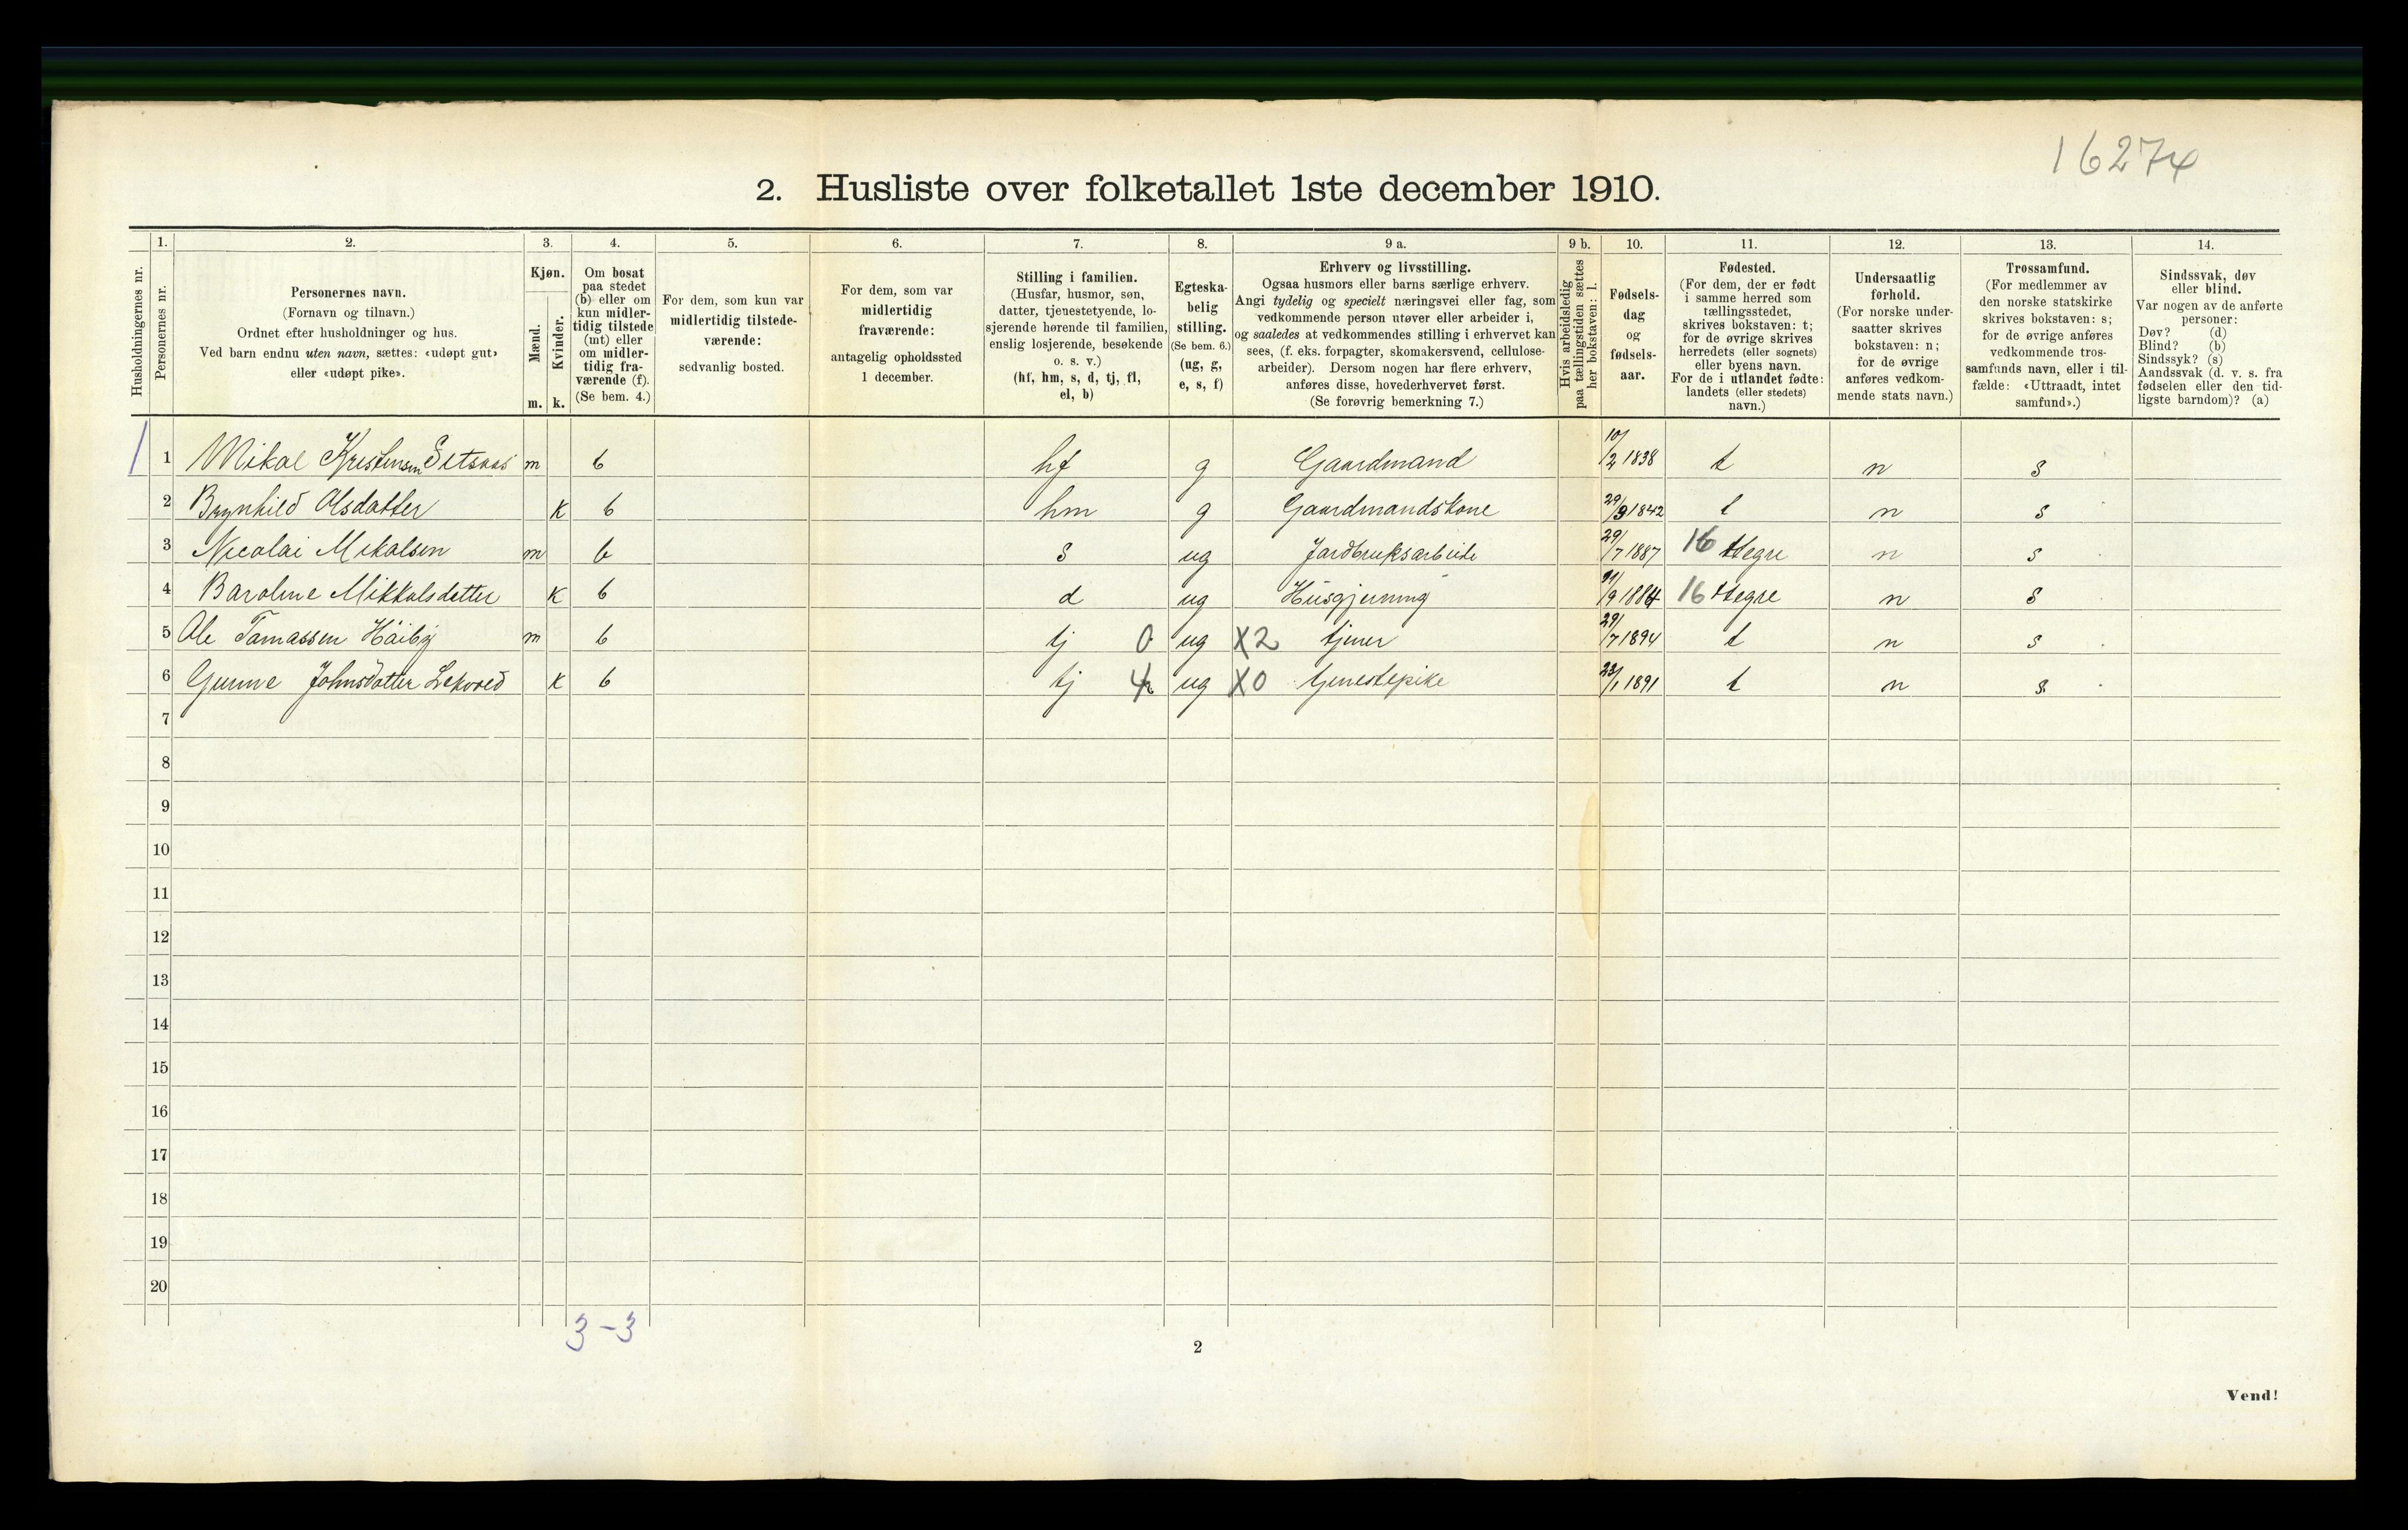 16274
2. Husliste over folketallet 1ste december 1910.
Husholdningernes nr.
1.
Personernes nr.
2.
Personernes navn.
(Fornavn og tilnavn.)
Ordnet efter husholdninger og hus.
Ved barn endnu uten navn, sættes: «udøpt gut»
eller «udøpt pike».
3.
Kjøn.
Mænd.
Kvinder.
m. k.
4.
Om bosat
paa stedet
(b) eller om
kun midler-
tidig tilstede
(mt) eller
om midler-
tidig fra-
værende (f).
(Se bem. 4.)
5.
For dem, som kun var
midlertidig tilstede-
værende:
sedvanlig bosted.
6.
For dem, som var
midlertidig
fraværende:
antagelig opholdssted
1 december.
7.
Stilling i familien.
(Husfar, husmor, søn,
datter, tjenestetyende, lo-
sjerende hørende til familien,
enslig losjerende, besøkende
o. s. v.)
(hf, hm, s, d, tj, fl,
el, b)
8.
Egteska-
belig
stilling.
(Se bem. 6.)
(ug, g,
e, s, f)
9 a.
Erhverv og livsstilling.
Ogsaa husmors eller barns særlige erhverv.
Angi tydelig og specielt næringsvei eller fag, som
vedkommende person utøver eller arbeider i,
og saaledes at vedkommendes stilling i erhvervet kan
sees, (f. eks. forpagter, skomakersvend, cellulose-
arbeider). Dersom nogen har flere erhverv,
anføres disse, hovederhvervet først.
(Se forøvrig bemerkning 7.)
9 b.
Hvis arbeidsledig
paa tællingstiden sættes
her bokstaven: l.
10.
Fødsels-
dag
og
fødsels-
aar.
11.
Fødested.
(For dem, der er født
i samme herred som
tællingsstedet,
skrives bokstaven: t;
for de øvrige skrives
herredets (eller sognets)
eller byens navn.
For de i utlandet fødte:
landets (eller stedets)
navn.)
12.
Undersaatlig
forhold.
(For norske under-
saatter skrives
bokstaven: n;
for de øvrige
anføres vedkom-
mende stats navn.)
13.
Trossamfund.
(For medlemmer av
den norske statskirke
skrives bokstaven: s;
for de øvrige anføres
vedkommende tros-
samfunds navn, eller i til-
fælde: «Uttraadt, intet
samfund».)
14.
Sindssvak, døv
eller blind.
Var nogen av de anførte
personer:
Døv? (d)
Blind? (b)
Sindssyk? (s)
Aandssvak (d. v. s. fra
fødselen eller den tid-
ligste barndom)? (a)
1 1 Mikal Kristensen m b hf g Gaardmand 10/2 1838 t n s
2 Brynhild Olsdatter k b hm g Gaardmandskone 29/9 1842 t n s
3 Nicolai Mikalsen m b s ug Jardbruksarbeide 29/7 1887 16 Hegre n s
4 Baroline Mikkalsdatter k b d ug Husgjerning /9 1884 16 Hegre n s
5 Ole Tamassen Häiby m b tj 0 ug X2 tjener 29/7 1894 t n s
6 Gurine Johnsdatter b k tj ug X0 tjenestepike 23/1 1891 t n s
7
8
9
10
11
12
13
14
15
16
17
18
19
20
3-3
2
Vend!